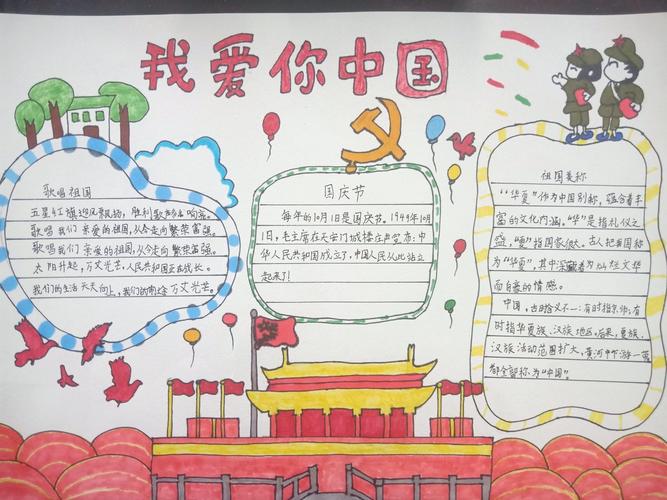 我爱你中国
歌唱祖国
五星红旗迎风飘扬,胜利歌声多么响亮。
歌唱我们亲爱的祖国,从今走向繁荣富强。
歌唱我们亲爱的祖国,从今走向繁荣富强。
太阳升起,万丈光芒,人民共和国正在成长。
我们的生活天天向上,我们的前途万丈光芒。
国庆节
每年的10月1日是国庆节。1949年10月
1日,毛主席在天安门城楼庄严宣布:中
华人民共和国成立了,中国人民从此站立
起来了!
祖国美称
“华夏”作为中国别称,蕴含着丰
富的文化内涵。“华”是指礼仪之
盛,“夏”指国家。古人把祖国称
为“华夏”,其中深藏着为灿烂文华
而自豪的情感。
中国,古时含义不一:有时指京师;有
时指华夏族、汉族地区,后来,夏族、
汉族活动范围扩大,黄河中下游一带
都全部称为“中国”。